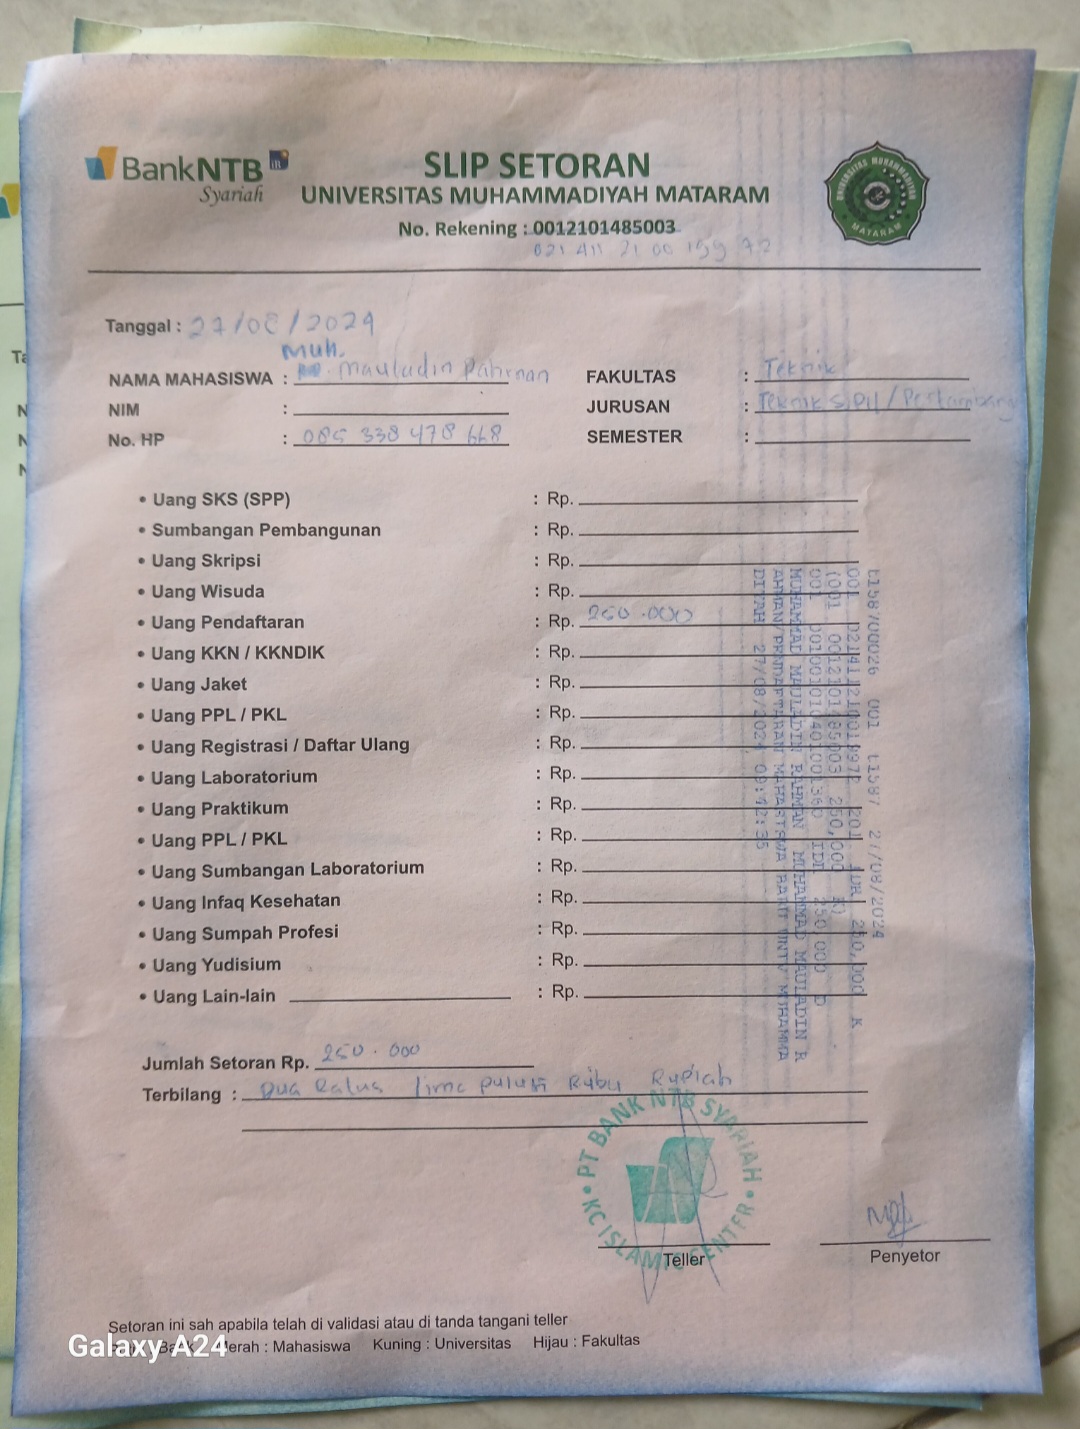 BankNTB
Syariah
SLIP SETORAN
UNIVERSITAS MUHAMMADIYAH MATARAM
No. Rekening : 0012101485003
021 411 21 00 199 72
Tanggal : 27/08/2024
Muh.
NAMA MAHASISWA : Mauladin Pahrman
NIM :
No. HP : 085 338 478 668
FAKULTAS : Teknik
JURUSAN : Teknik Sipil / Pertambang
SEMESTER :
• Uang SKS (SPP) : Rp.
• Sumbangan Pembangunan : Rp.
• Uang Skripsi : Rp.
• Uang Wisuda : Rp.
• Uang Pendaftaran : Rp. 250.000
• Uang KKN / KKNDIK : Rp.
• Uang Jaket : Rp.
• Uang PPL / PKL : Rp.
• Uang Registrasi / Daftar Ulang : Rp.
• Uang Laboratorium : Rp.
• Uang Praktikum : Rp.
• Uang PPL / PKL : Rp.
• Uang Sumbangan Laboratorium : Rp.
• Uang Infaq Kesehatan : Rp.
• Uang Sumpah Profesi : Rp.
• Uang Yudisium : Rp.
• Uang Lain-lain : Rp.
t1587 27/08/2024
250,000 K
IDR 250,000 D
MUHAMMAD MAULADIN RAHMAN MUHAMMAD MAULADIN R
DIYAH 27/08/2024 09:42:35
Jumlah Setoran Rp. 250.000
Terbilang : Dua Ratus lima puluh Ribu Rupiah
PT BANK NTB SYARIAH
KC ISLAMIC CENTER
Teller
Penyetor
Setoran ini sah apabila telah di validasi atau di tanda tangani teller
Merah : Mahasiswa Kuning : Universitas Hijau : Fakultas
Galaxy A24